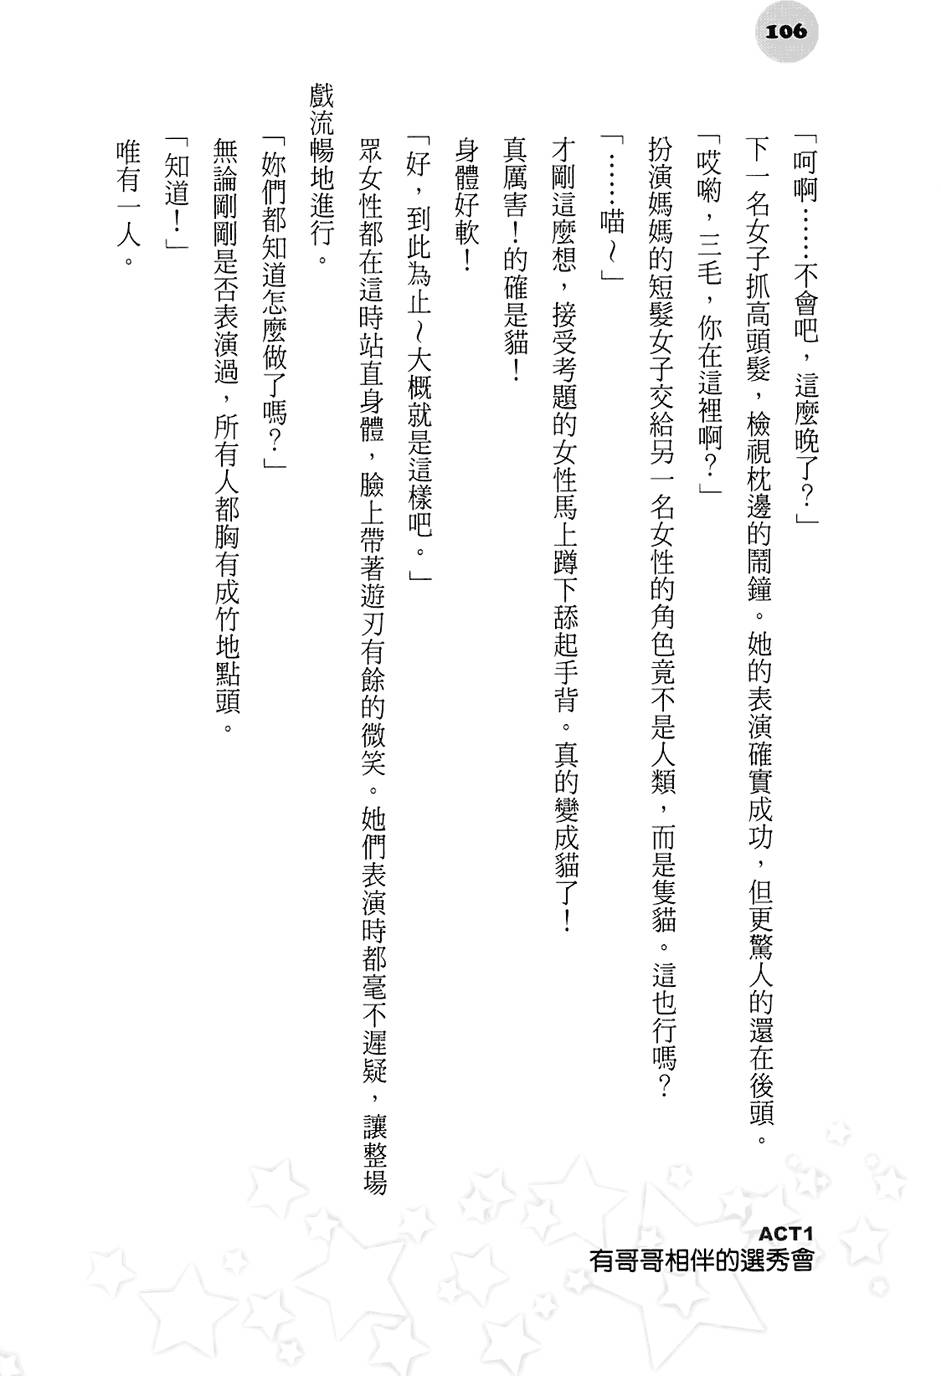 106
「呵啊……不會吧，這麼晚了？」
下一名女子抓高頭髮，檢視枕邊的鬧鐘。她的表演確實成功，但更驚人的還在後頭。
「哎喲，三毛，你在這裡啊？」
扮演媽媽的短髮女子交給另一名女性的角色竟不是人類，而是隻貓。這也行嗎？
「……喵～」
才剛這麼想，接受考題的女性馬上蹲下舔起手背。真的變成貓了！
真厲害！的確是貓！
身體好軟！
「好，到此為止～大概就是這樣吧。」
眾女性都在這時站直身體，臉上帶著遊刃有餘的微笑。她們表演時都毫不遲疑，讓整場
戲流暢地進行。
「妳們都知道怎麼做了嗎？」
無論剛剛是否表演過，所有人都胸有成竹地點頭。
「知道！」
唯有一人。
ACT1
有哥哥相伴的選秀會